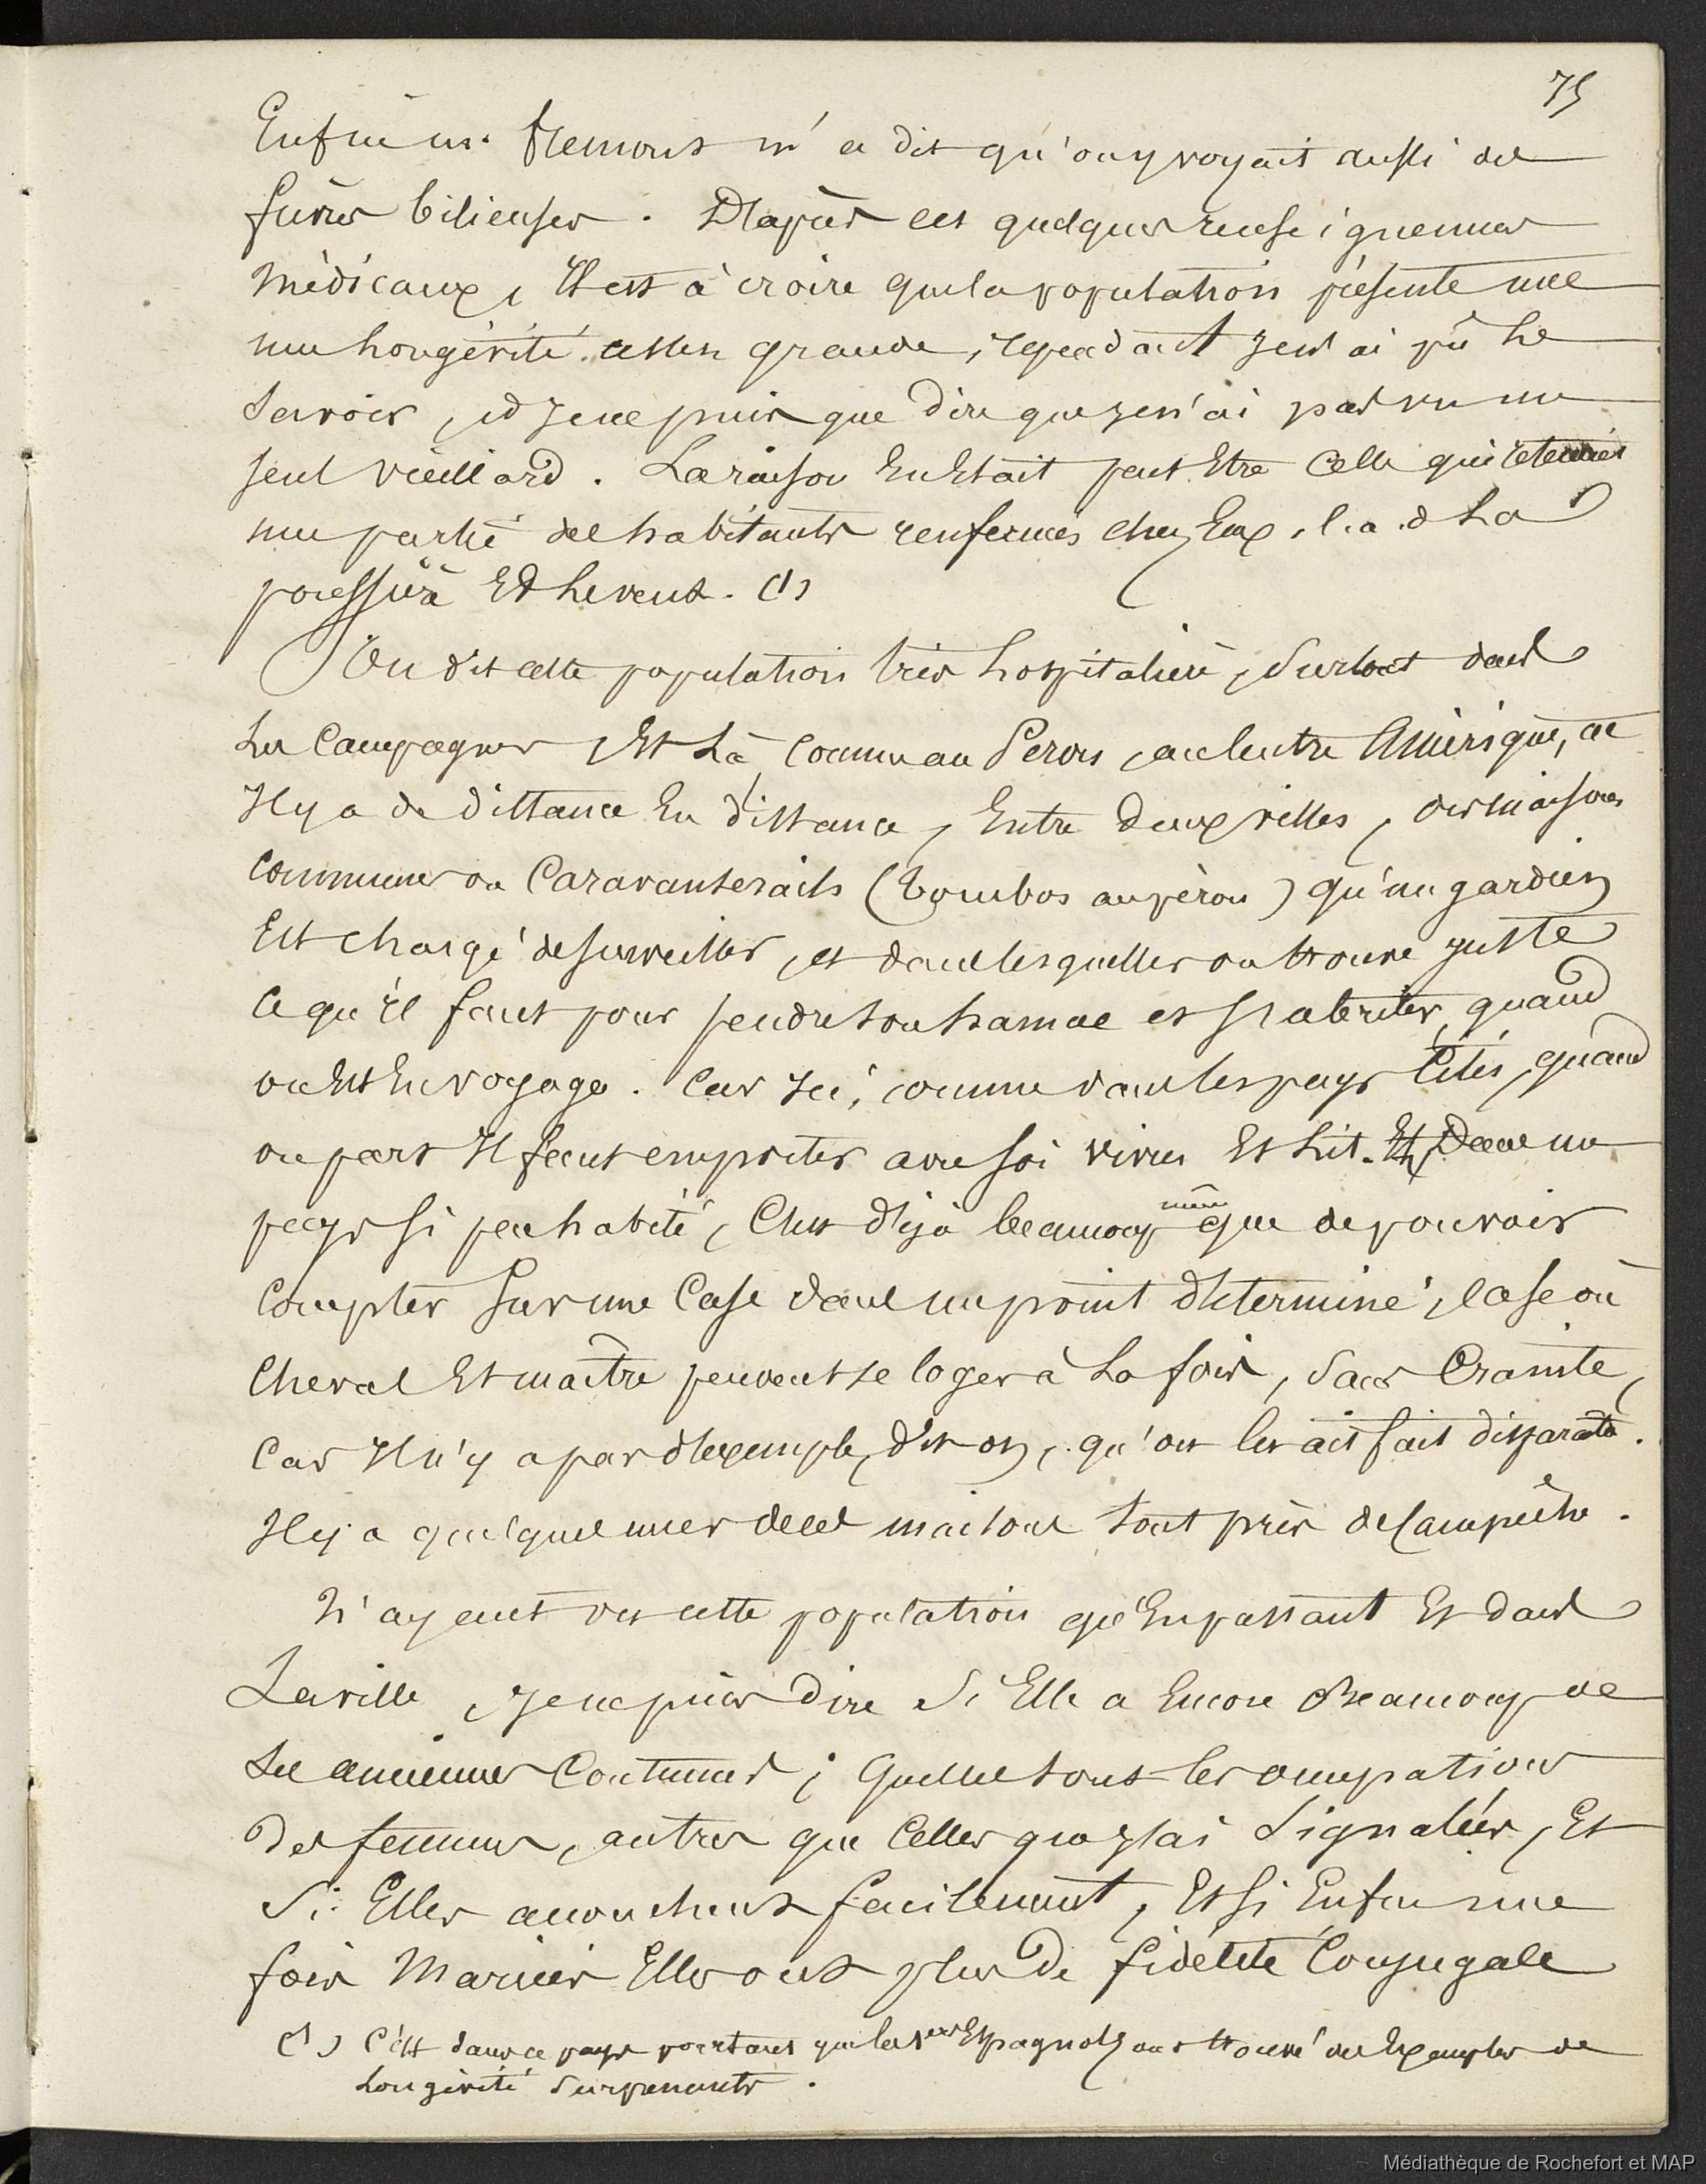 75
Enfin mr. Flemons m'a dit qu'on y voyait aussi des
fièvres bilieuses. D'après ces quelques renseignemens
médicaux, Il est à croire que la population présente une
une Longévité assez grande, cependant je n'ai pû Le
Savoir, et je ne puis que dire que je n'ai pas vu un
seul vieillard. La raison En était peut Etre Celle qui
une partie des habitants renfermés chez Eux, c. a. d La
poussière Et Le vent. (1)
On dit cette population très hospitalière, Surtout dans
Les Campagnes, Et Là, comme au Perou, au centre Amérique, &
Il y a de distance En distance, Entre deux villes, des maisons
Communes ou Caravanserails (tombos au pèrou) qu'un gardien
Est chargé de surveiller, et dans lesquelles on trouve juste
ce qu'il faut pour pendre son hamac et s'abriter, quand
on Est En voyage. Car Ici, comme dans les pays Cités, quand
on part Il faut emporter avec soi vivres Et Lit. Dans un
pays si peu habité, C'est déjà beaucoup même que de pouvoir
Compter Sur une Case dans un point déterminé, case où
Cheval Et maître peuvent se loger à La fois, Sans Crainte,
Car Il n'y a pas d'exemple, dit on, qu'on les ait fait disparaitre.
Il y a quelques unes de ces maisons tout près de Campêche.
N'ayant vu cette population qu'En passant Et dans
La ville, je ne puis dire Si Elle a Encore Beaucoup de
Ses anciennes Coutumes; Quelles sont les occupations
Des femmes, autres que Celles que j'ai Signalées, Et
Si Elles accouchent facilement, Et si Enfin une
fois Mariées Elles ont plus De fidélité Conjugale
(1) C'est dans ce pays pourtant que les 1ers Espagnols ont trouvé des Exemples de
Longévité Surprenants.
Médiathèque de Rochefort et MAP